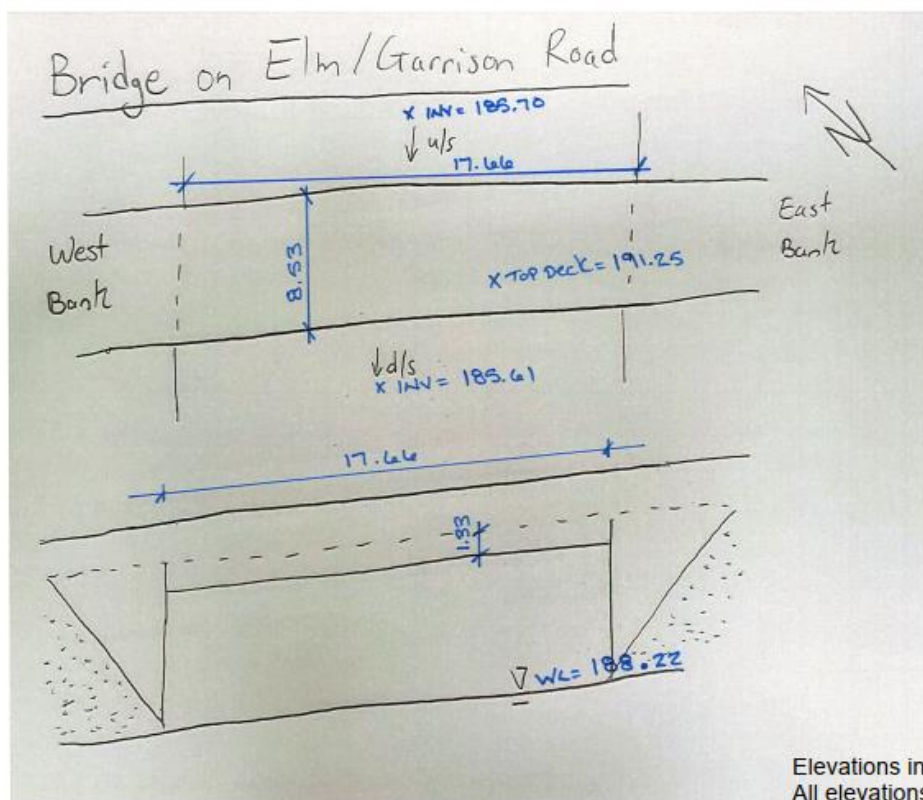 Bridge on Elm/Garrison Road
x INV = 185.70
↓ u/s
17.66
N
West
Bank
8.53
East
Bank
x TOP DECK = 191.25
↓ d/s
x INV = 185.61
17.66
1.33
WL = 188.22
Elevations in
All elevations